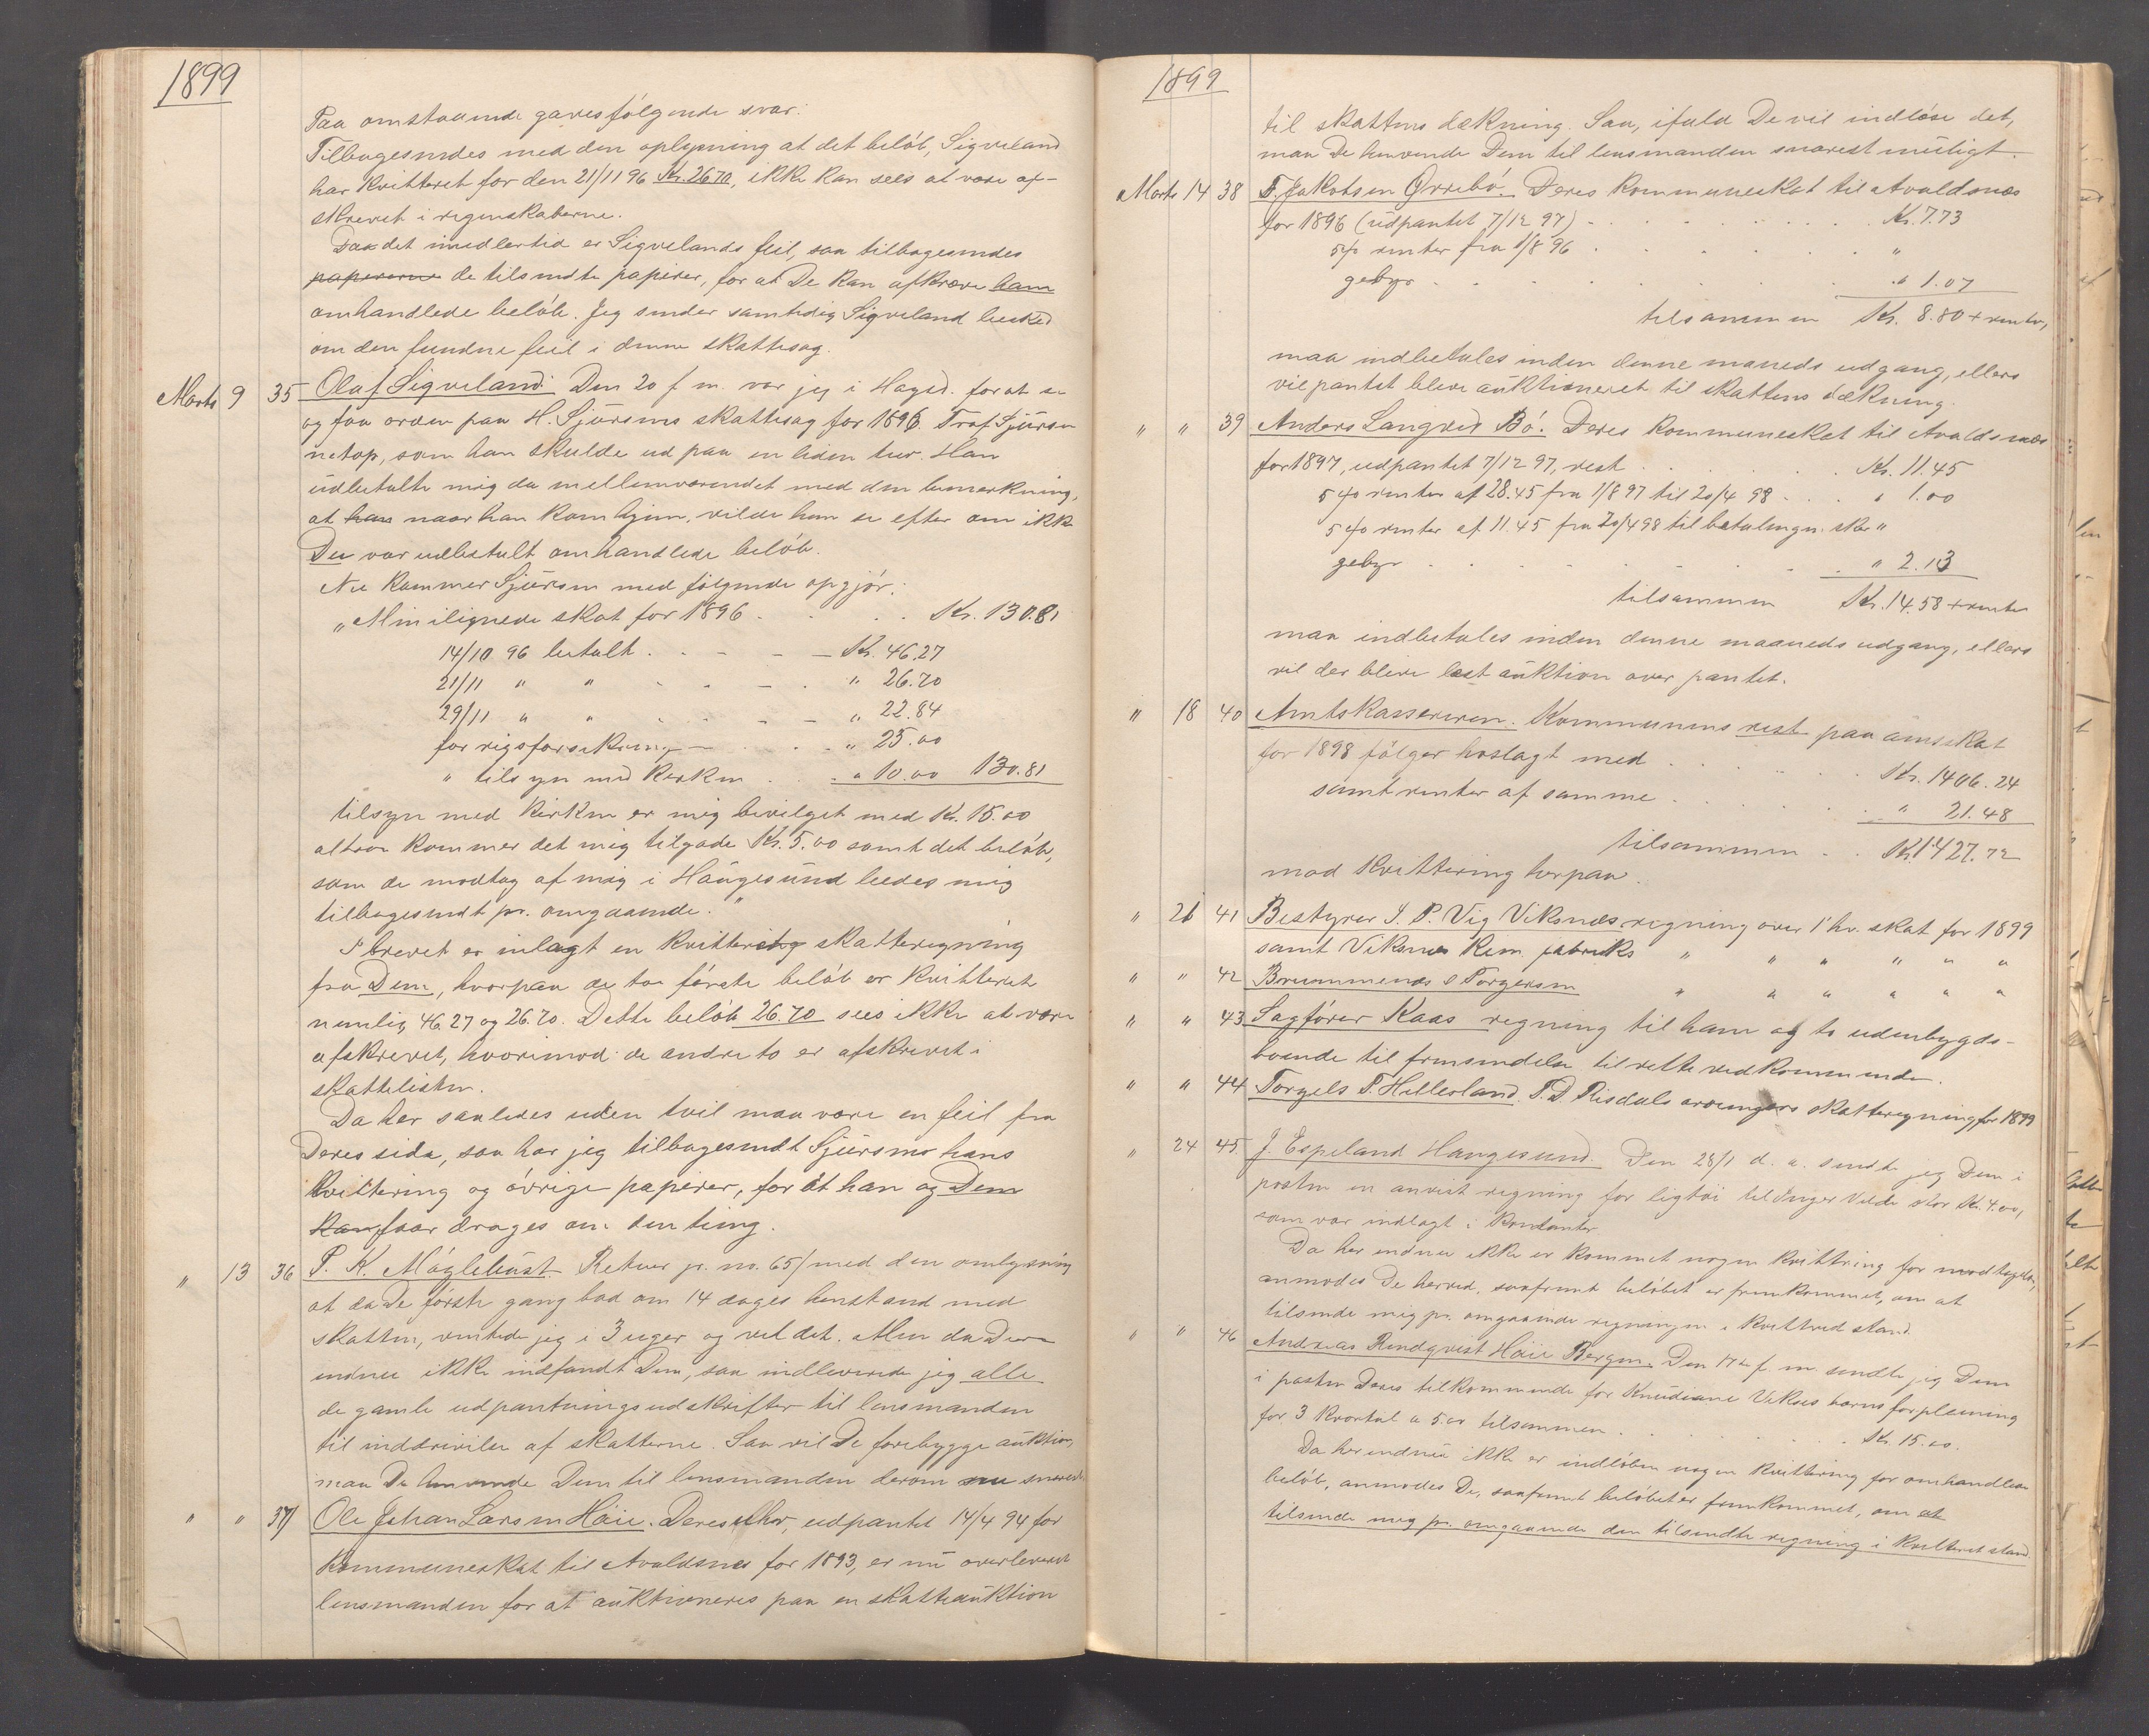 1899
Paa omstaaende gaves følgende svar:
Tilbagesendes med den oplysning at det beløb, Sigveland
har kvitteret for den 21/11 96 Kr. 26.70, ikke kan sees at være af-
skrevet i regnskaberne.
Da det imedlertid er Sigvelands feil, saa tilbagesendes
papirerne de tilsendte papirer, for at De kan afkræve ham
omhandlede beløb. Jeg sender samtidig Sigveland besked
om den fundne feil i denne skattesag.
Marts 9 35 Olaf Sigveland. Den 20 f m. var jeg i Haugsd. for at se
og faa orden paa H. Sjursens skattesag for 1896. Traf Sjursen
netop, som han skulde ud paa en liden tur. Han
udbetalte mig da mellemværendet med den bemerkning,
at han naar han kom hjem, vilde han se efter om ikke
Du var udbetalt omhandlede beløb.
Nu kommer Sjursen med følgende opgjør:
"Min ilignede skat for 1896 . . . . Kr. 130.81
14/10 96 betalt . . . . Kr. 46.27
21/11 " " . . . . " 26.70
29/11 " " . . . . " 22.84
for rigsforsikring . . . " 25.00
" tilsyn med kirken . . " 10.00 130.81
tilsyn med kirken er mig bevilget med Kr. 15.00
altsaa kommer det mig tilgode Kr. 5.00 samt det beløb,
som de modtog af mig i Haugesund bedes mig
tilbagesendt pr. omgaaende."
I brevet er inlagt en kvittering skatteregning
fra Dem, hvorpaa de to første beløb er kvitteret
nemlig 46.27 og 26.70. Dette beløb 26.70 sees ikke at være
afskrevet, hvorimod de andre to er afskrevet i
skattelisten.
Da her saaledes uden tvil maa være en feil fra
Deres side, saa har jeg tilbagesendt Sjursen hans
kvittering og øvrige papirer, for at han og Dem
kan faar drages om den ting.
" 13 36 P. K. Møglebust. Retur jr. no. 65/ med den omlysning
at da De første gang bad om 14 dages henstand med
skatten, ventede jeg i 3 uger og vel det. Men da De
endnu ikke indfandt Dem, saa indleverede jeg alle
de gamle udpantningsudskrifter til lensmanden
til inddrivelse af skatterne. Saa vil De forebygge auktion,
maa De henvende Dem til lensmanden derom nu snarest
" " 37 Ole Johan Larsen Høie. Deres uhr, udpantet 14/4 94 for
kommuneskat til Avaldsnes for 1893, er nu overleveret
lensmanden for at auktioneres paa en skatteauktion
1899
til skattens dækning. Saa, ifald De vil indløse det,
maa De henvende Dem til lensmanden snarest muligt.
Marts 14 38 T. Jakobsen Ørrebø. Deres kommuneskat til Avaldsnes
for 1896 (udpantet 7/12 97) . . . . Kr. 7.73
5% renter fra 1/8 96 . . . . "
gebyr . . . . " 1.07
tilsammen Kr. 8.80 + renter,
maa indbetales inden denne maaneds udgang, ellers
vil pantet blive auktioneret til skattens dækning.
" " 39 Anders Langved Bø. Deres kommuneskat til Avaldsnes
for 1897, udpantet 7/12 97, rest . . . . Kr. 11.45
5% renter af 28.45 fra 1/8 97 til 20/4 98 . . . " 1.00
5% renter af 11.45 fra 20/4 98 til betalingen sker "
gebyr . . . . " 2.13
tilsammen Kr. 14.58 + renter
maa indbetales inden denne maaneds udgang, ellers
vil der blive læst auktion over pantet.
" 18 40 Amtskassereren. Kommunens rest paa amtskat
for 1898 følger hoslagt med . . . . Kr. 1406.24
samt renter af samme . . . . " 21.48
tilsammen . . Kr. 1427.72
mod kvittering herpaa.
" 21 41 Bestyrer S. P. Vig Viksnæs regning over 1 hv. skat for 1899
samt Viksnes kem. fabriks " " " " " "
" " 42 Brummenæs & Torgersen " " " " " "
" " 43 Sagfører Kaas regning til ham og to udenbygds-
boende til fremsendelse til rette vedkommende.
" " 44 Torgels T. Hillesland. T. D. Risdals arvingers skatteregning for 1899
" 24 45. J. Espeland Haugesund. Den 28/1 d. a. sendte jeg Dem i
posten en anvist regning for ligtøi til Inger Velde stor Kr. 4.00,
som var indlagt i kontanter
Da her endnu ikke er kommet nogen kvittering for modtagelsen,
anmodes De herved, saafremt beløbet er fremkommet, om at
tilsende mig pr. omgaaende regningen i kvitteret stand.
" " 46 Andreas Rendqvist Høie Bergen. Den 17de f. m. sendte jeg Dem
i posten Deres tilkommende for Knudiane Vikses barns forpleining
for 3 kvartal a 5.00 tilsammen . . . . Kr. 15.00.
Da her endnu ikke er indløben nogen kvittering for omhandlede
beløb, anmodes De, saafremt beløbet er fremkommet, om at
tilsende mig pr. omgaaende den tilsendte regning i kvitteret stand